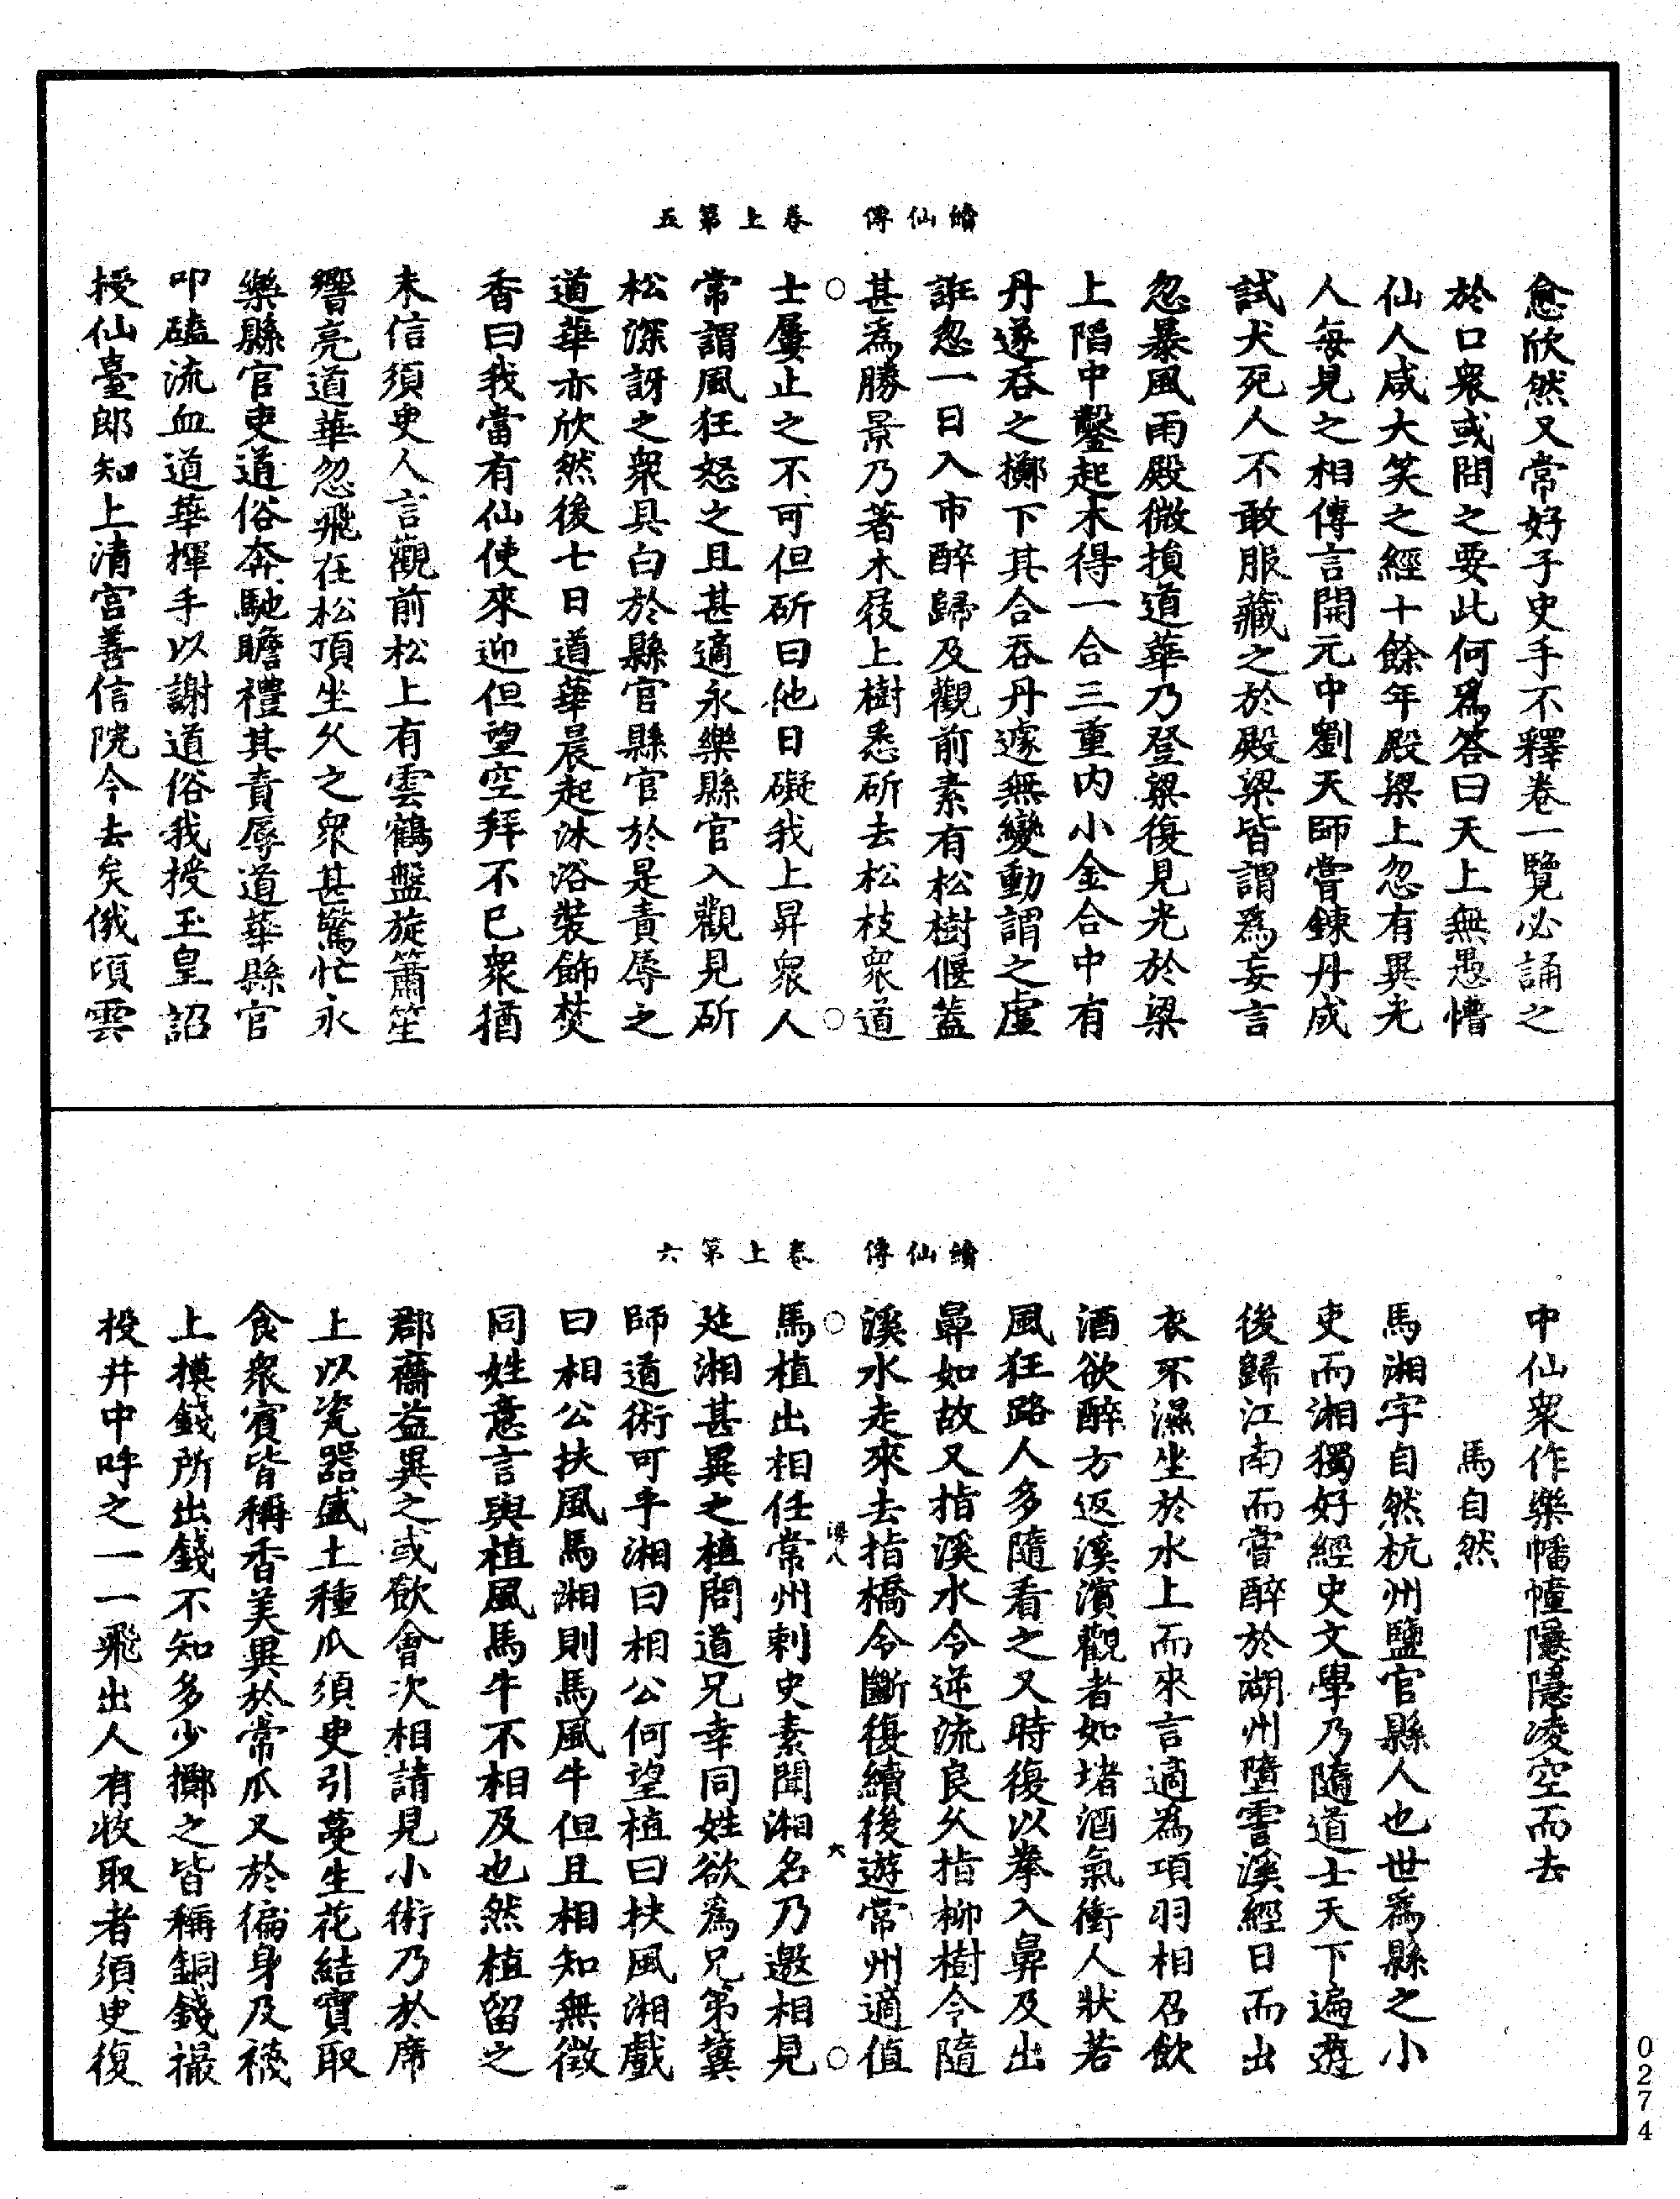 續仙傳　卷上第五
愈欣然又常好子史手不釋卷一覽必誦之
於口衆或問之要此何爲答曰天上無愚懵
仙人咸大笑之經十餘年殿梁上忽有異光
人每見之相傳言開元中劉天師嘗鍊丹成
試犬死人不敢服藏之於殿梁皆謂爲妄言
忽暴風雨殿微損道華乃登梁復見光於梁
上陷中鑿起木得一合三重内小金合中有
丹遂吞之擲下其合吞丹遽無變動謂之虛
誑忽一日入市醉歸及觀前素有松樹偃蓋
甚爲勝景乃著木屐上樹悉斫去松枝衆道
士屢止之不可但斫曰他日礙我上昇衆人
常謂風狂怒之且甚適永樂縣官入觀見斫
松深訝之衆具白於縣官縣官於是責辱之
道華亦欣然後七日道華晨起沐浴裝飾焚
香曰我當有仙使來迎但望空拜不已衆猶
未信須臾人言觀前松上有雲鶴盤旋簫笙
響亮道華忽飛在松頂坐久之衆甚驚忙永
樂縣官吏道俗奔馳瞻禮其責辱道華縣官
叩磕流血道華揮手以謝道俗我授玉皇詔
授仙臺郎知上清宮善信院今去矣俄頃雲
續仙傳　卷上第六
中仙衆作樂幡幢隱隱凌空而去
馬自然
馬湘字自然杭州鹽官縣人也世爲縣之小
吏而湘獨好經史文學乃隨道士天下遍遊
後歸江南而嘗醉於湖州墮霅溪經日而出
衣不濕坐於水上而來言適爲項羽相召飲
酒欲醉方返溪濱觀者如堵酒氣衝人狀若
風狂路人多隨看之又時復以拳入鼻及出
鼻如故又指溪水令逆流良久指柳樹令隨
溪水走來去指橋令斷復續後遊常州適值
六
馬植出相任常州刺史素聞湘名乃邀相見
延湘甚異之植問道兄幸同姓欲爲兄弟冀
師道術可乎湘曰相公何望植曰扶風湘戲
曰相公扶風馬湘則馬風牛但且相知無徵
同姓意言與植風馬牛不相及也然植留之
郡齋益異之或飲會次相請見小術乃於席
上以瓷器盛土種瓜須臾引蔓生花結實取
食衆賓皆稱香美異於常瓜又於徧身及襪
上摸錢所出錢不知多少擲之皆稱銅錢撮
投井中呼之一一飛出人有收取者須臾復
0274